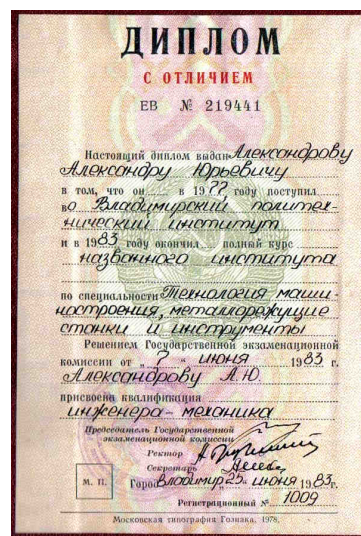 ДИПЛОМ
С ОТЛИЧИЕМ
ЕВ № 219441
Настоящий диплом выдан Александрову
Александру Юрьевичу
в том, что он в 1977 году поступил
во Владимирский политех-
нический институт
и в 1983 году окончил полный курс
названного института
по специальности Технология маши-
ностроения, металлорежущие
станки и инструменты
Решением Государственной экзаменационной
комиссии от „7“ июня 1983 г.
Александрову А.Ю.
присвоена квалификация
инженера-механика
Председатель Государственной
экзаменационной комиссии
Ректор
Секретарь
М. П. Город Владимир, 25 июня 1983 г.
Регистрационный № 1009
Московская типография Гознака. 1978.